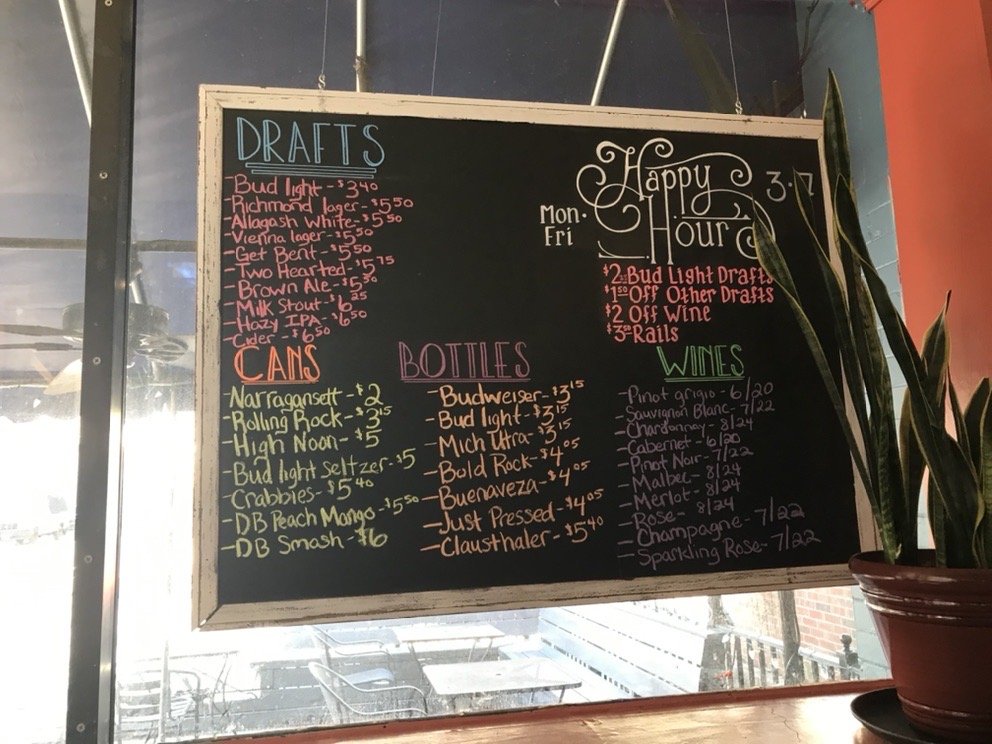 DRAFTS
- Bud light - $3 40
- Richmond lager - $5 50
- Allagash White - $5 50
- Vienna lager - $5 50
- Get Bent - $5 50
- Two Hearted - $5 75
- Brown Ale - $5 50
- Milk Stout - $6 25
- Hazy IPA - $6 50
- Cider - $6 50
Happy Hour
Mon - Fri
3-7
$2 Bud Light Drafts
$1 50 Off Other Drafts
$2 Off Wine
$3 50 Rails
CANS
- Narragansett - $2
- Rolling Rock - $3 15
- High Noon - $5
- Bud light seltzer - $5
- Crabbies - $5 40
- DB Peach Mango - $5 50
- DB Smash - $6
BOTTLES
- Budweiser - $3 15
- Bud light - $3 15
- Mich Ultra - $3 15
- Bold Rock - $4 05
- Buenaveza - $4 05
- Just Pressed - $4 05
- Clausthaler - $5 40
WINES
- Pinot grigio - 6/20
- Sauvignon Blanc - 7/22
- Chardonnay - 8/24
- Cabernet - 6/20
- Pinot Noir - 7/22
- Malbec - 8/24
- Merlot - 8/24
- Rose - 8/24
- Champagne - 7/22
- Sparkling Rose - 7/22